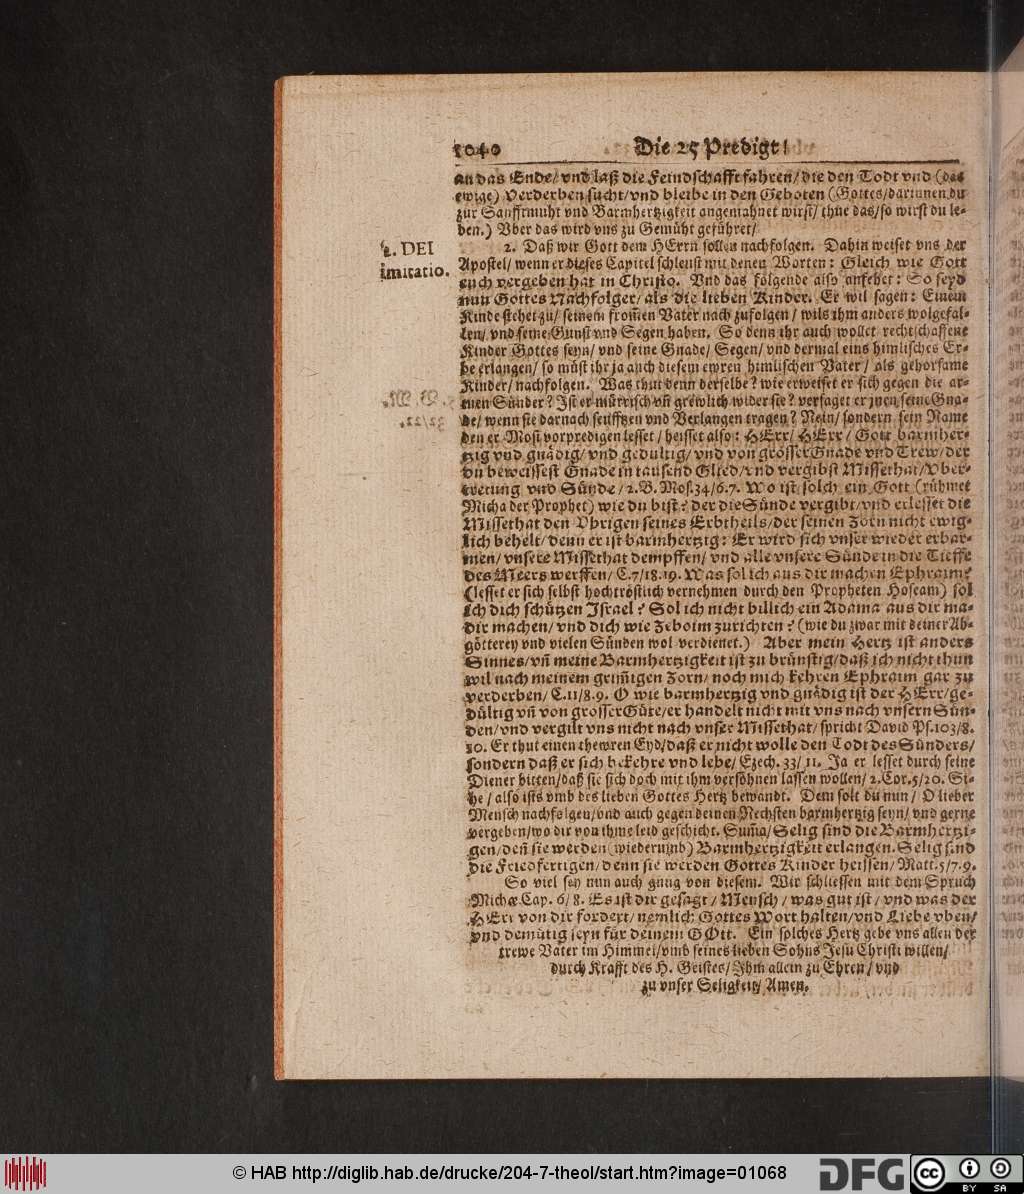 1040 Die 25 Predigt/
an das Ende/ vnd laß die Feindschafft fahren/ die den Todt vnd (das
ewige) Verderben sucht/ vnd bleibe in den Geboten (Gottes/ darinnen du
zur Sanfftmuht vnd Barmhertzigkeit angemahnet wirst/ thue das/ so wirst du le-
ben.) Vber das wird vns zu Gemüht geführet/
2. DEI
imitatio.
2. Daß wir Gott dem HErrn sollen nachfolgen. Dahin weiset vns der
Apostel/ wenn er dieses Capitel schleust mit denen Worten: Gleich wie Gott
euch vergeben hat in Christo. Vnd das folgende also anfehet: So seyd
nun Gottes Nachfolger/ als die lieben Kinder. Er wil sagen: Einem
Kinde stehet zu/ seinem from̃en Vater nach zufolgen/ wils ihm anders wolgefal-
len/ vnd seine Gunst vnd Segen haben. So denn ihr auch wollet rechtschaffene
Kinder Gottes seyn/ vnd seine Gnade/ Segen/ vnd dermal eins himlisches Er-
be erlangen/ so můst ihr ja auch diesem ewren himlischen Vater/ als gehorsame
Kinder/ nachfolgen. Was thut denn derselbe? wie erweiset er sich gegen die ar-
men Sünder? Ist er můrrisch vñ grewlich wider sie? versaget er jnen seine Gna-
de/ wenn sie darnach seufftzen vnd Verlangen tragen? Nein/ sondern sein Name
den er Mosi vorpredigen lesset/ heisset also: HErr/ HErr/ Gott barmher-
tzig vnd gnådig/ vnd gedultig/ vnd von grosser Gnade vnd Trew/ der
du beweissest Gnade in tausend Glied/ vnd vergibst Missethat/ Vber-
tretung vnd Sünde/ 2. B. Mos. 34/ 6. 7. Wo ist solch ein Gott (rühmet
Micha der Prophet) wie du bist? der die Sünde vergibt/ vnd erlesset die
Missethat den Vbrigen seines Erbtheils/ der seinen Zorn nicht ewig-
lich behelt/ denn er ist barmhertzig: Er wird sich vnser wieder erbar-
men/ vnsere Missethat dempffen/ vnd alle vnsere Sünde in die Tieffe
des Meers werffen/ C. 7/ 18. 19. Was sol ich aus dir machen Ephraim?
(lesset er sich selbst hochtröstlich vernehmen durch den Propheten Hoseam) sol
ich dich schützen Israel? Sol ich nicht billich ein Adama aus dir ma-
dir machen/ vnd dich wie Zeboim zurichten? (wie du zwar mit deiner Ab-
götterey vnd vielen Sünden wol verdienet.) Aber mein Hertz ist anders
Sinnes/ vñ meine Barmhertzigkeit ist zu brünstig/ daß ich nicht thun
wil nach meinem grim̃igen Zorn/ noch mich kehren Ephraim gar zu
verderben/ C. 11/ 8. 9. O wie barmhertzig vnd gnådig ist der HErr/ ge-
dültig vñ von grosser Güte/ er handelt nicht mit vns nach vnsern Sün-
den/ vnd vergilt vns nicht nach vnser Missethat/ spricht David Ps. 103/ 8.
10. Er thut einen thewren Eyd/ daß er nicht wolle den Todt des Sünders/
sondern daß er sich bekehre vnd lebe/ Ezech. 33/ 11. Ja er lesset durch seine
Diener bitten/ daß sie sich doch mit ihm versöhnen lassen wollen/ 2. Cor. 5/ 20. Si-
he/ also ists vmb des lieben Gottes Hertz bewandt. Dem solt du nun/ O lieber
Mensch nachfolgen/ vnd auch gegen deinen Nechsten barmhertzig seyn/ vnd gerne
vergeben/ wo dir von ihme leid geschicht. Sum̃a/ Selig sind die Barmhertzi-
gen/ deñ sie werden (wiederumb) Barmhertzigkeit erlangen. Selig sind
die Friedfertigen/ denn sie werden Gottes Kinder heissen/ Matt. 5/ 7. 9.
So viel sey nun auch gnug von diesem. Wir schliessen mit dem Spruch
Michæ Cap. 6/ 8. Es ist dir gesagt/ Mensch/ was gut ist/ vnd was der
HErr von dir fordert/ nemlich Gottes Wort halten/ vnd Liebe vben/
vnd demütig seyn für deinem GOtt. Ein solches Hertz gebe vns allen der
trewe Vater im Himmel/ vmb seines lieben Sohns Jesu Christi willen/
durch Krafft des H. Geistes/ Ihm allein zu Ehren/ vnd
zu vnser Seligkeit/ Amen.
© HAB http://diglib.hab.de/drucke/204-7-theol/start.htm?image=01068
DFG
cc
BY SA